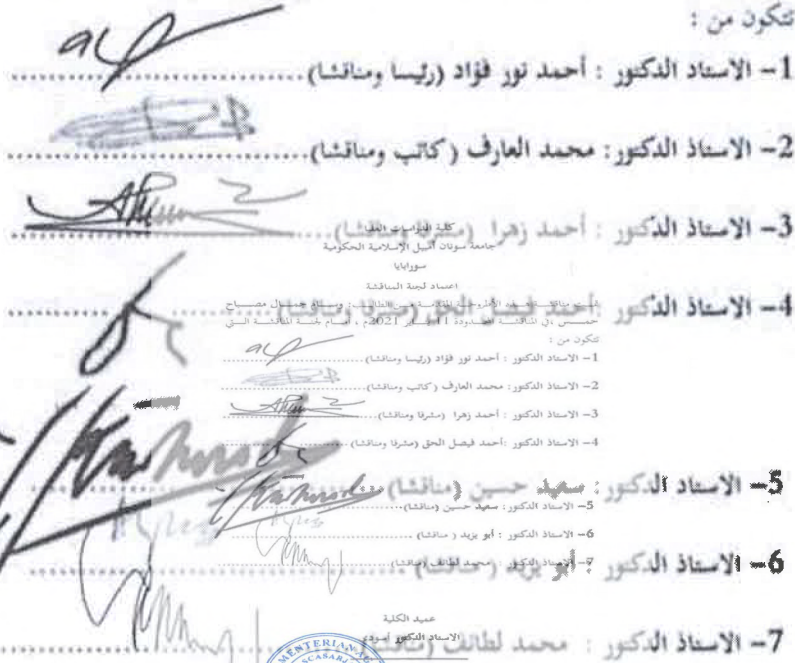 تتكون من :
1- الاستاد الدكتور : أحمد نور فؤاد (رئيسا ومناقشا)
2- الاستاذ الدكتور: محمد العارف ( كاتب ومناقشا)
3- الاستاذ الدكتور : أحمد زهرا (مشرفا ومناقشا)
4- الاستاذ الدكتور :أحمد فيصل الحق (مشرفا ومناقشا)
5- الاستاد الدكتور: سعيد حسين (مناقشا)
6- الاستاذ الدكتور : أبو يزيد ( مناقشا)
7- الاستاذ الدكتور : محمد لطائف (مناقشا)
كلية الدراسات العليا
جامعة سونان أمبيل الإسلامية الحكومية
سورابايا
اعتماد لجنة المناقشة
تمت مناقشة هذه الأطروحة المقدمة من الطالب: وسام جمال مصباح
حمس ،في المناقشة المحدودة 11 2021م ، أمام لجنة المناقشة التي
تتكون من :
1- الاستاد الدكتور : أحمد نور فؤاد (رئيسا ومناقشا)
2- الاستاذ الدكتور: محمد العارف ( كاتب ومناقشا)
3- الاستاذ الدكتور : أحمد زهرا (مشرفا ومناقشا)
4- الاستاذ الدكتور :أحمد فيصل الحق (مشرفا ومناقشا)
5- الاستاد الدكتور: سعيد حسين (مناقشا)
6- الاستاذ الدكتور : أبو يزيد ( مناقشا)
7- الاستاذ الدكتور : محمد لطائف (مناقشا)
عميد الكلية
الاستاد الدكتور أسودي